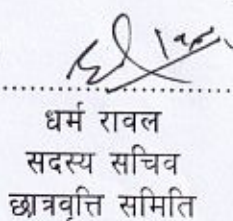 धर्म रावल
सदस्य सचिव
छात्रवृत्ति समिति